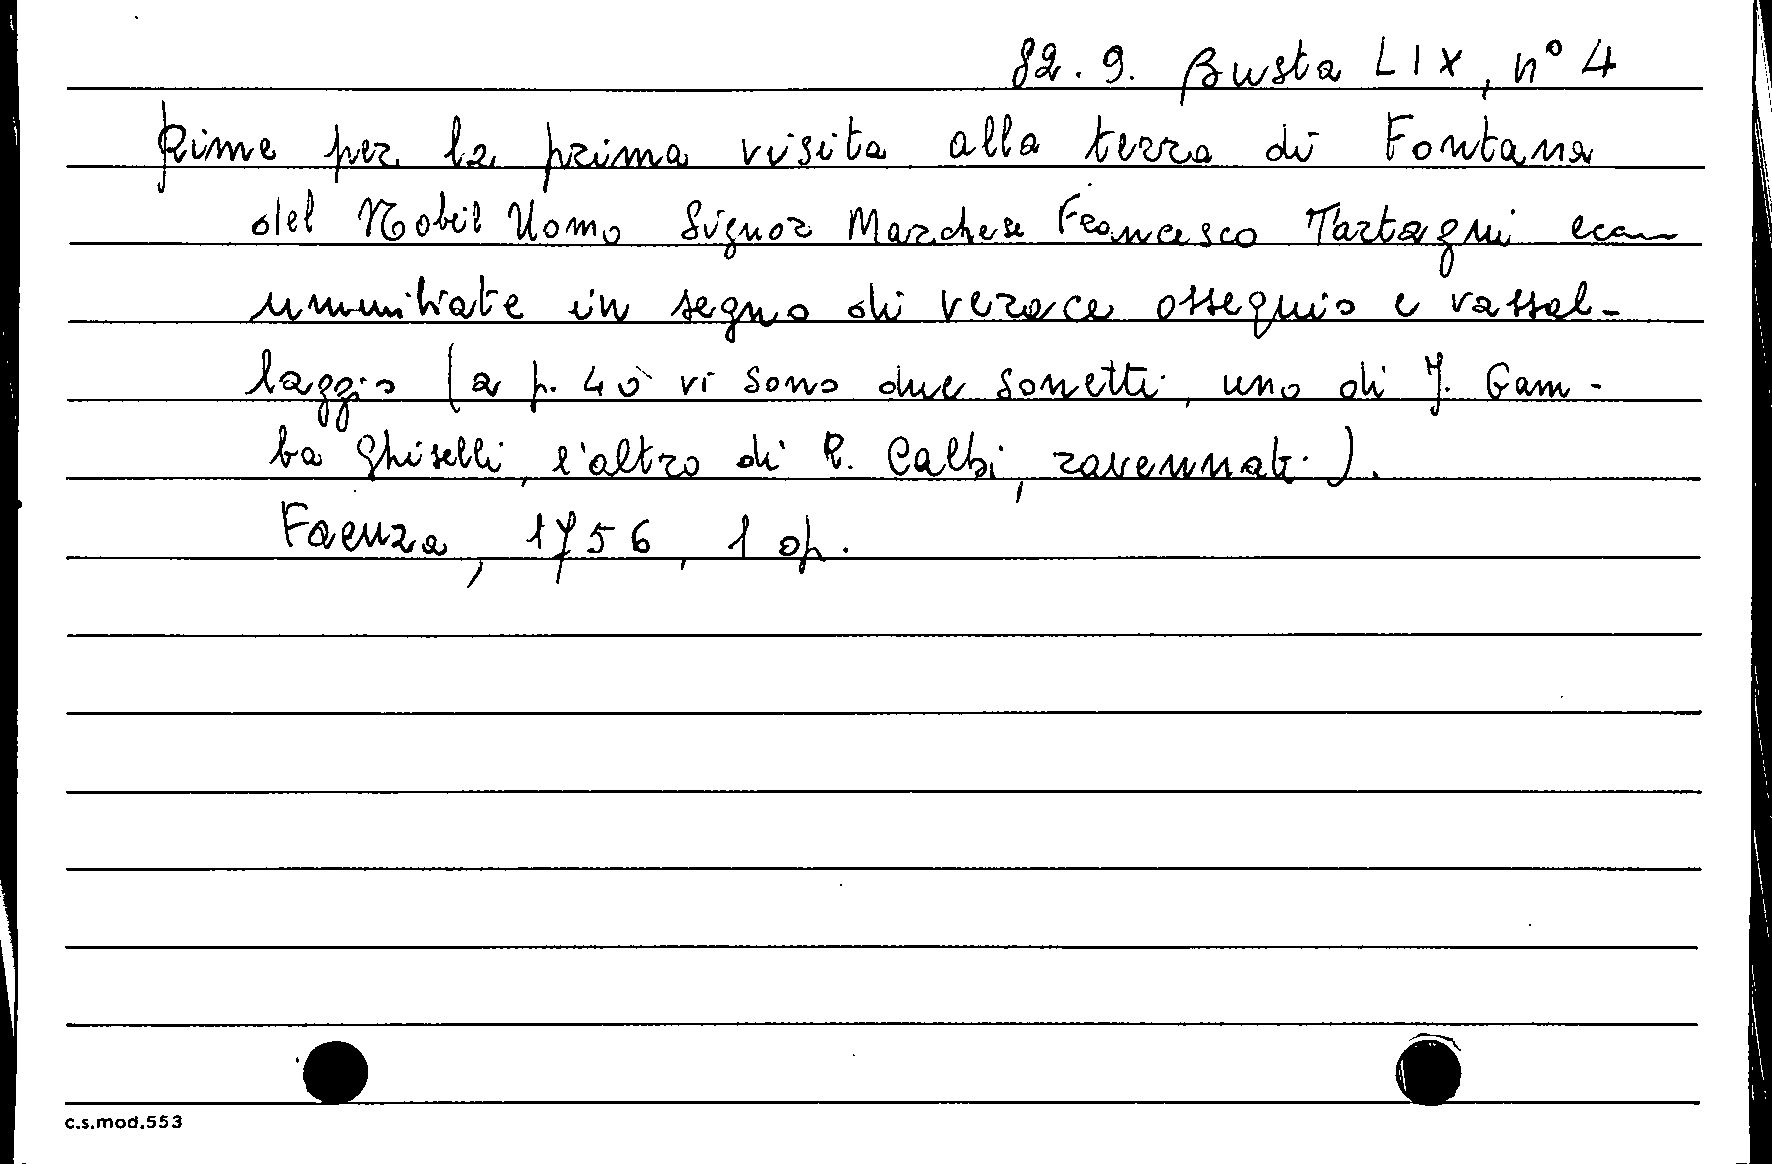 82.9. Busta LIX, n° 4
Rime per la prima visita alla terra di Fontana
del Nobil Uomo Signor Marchese Francesco Tartagni
umiliate in segno di verace ossequio e vassal-
laggio (a p. 40 vi sono due sonetti, uno di J. Gam-
ba Ghiselli, l'altro di R. Calbi, ravennati).
Faenza, 1756, 1 op.
c.s.mod.553